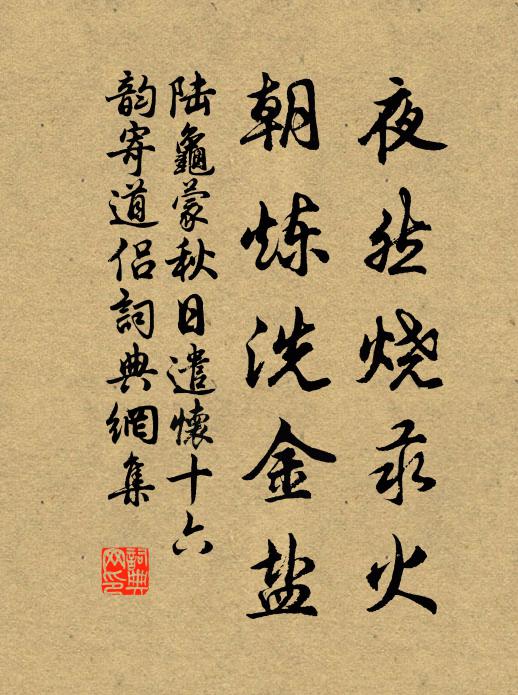 夜然烧汞火
朝炼洗金盐
陆龜蒙秋日遣懷十六
韵寄道侣詞典網集
詞典网印